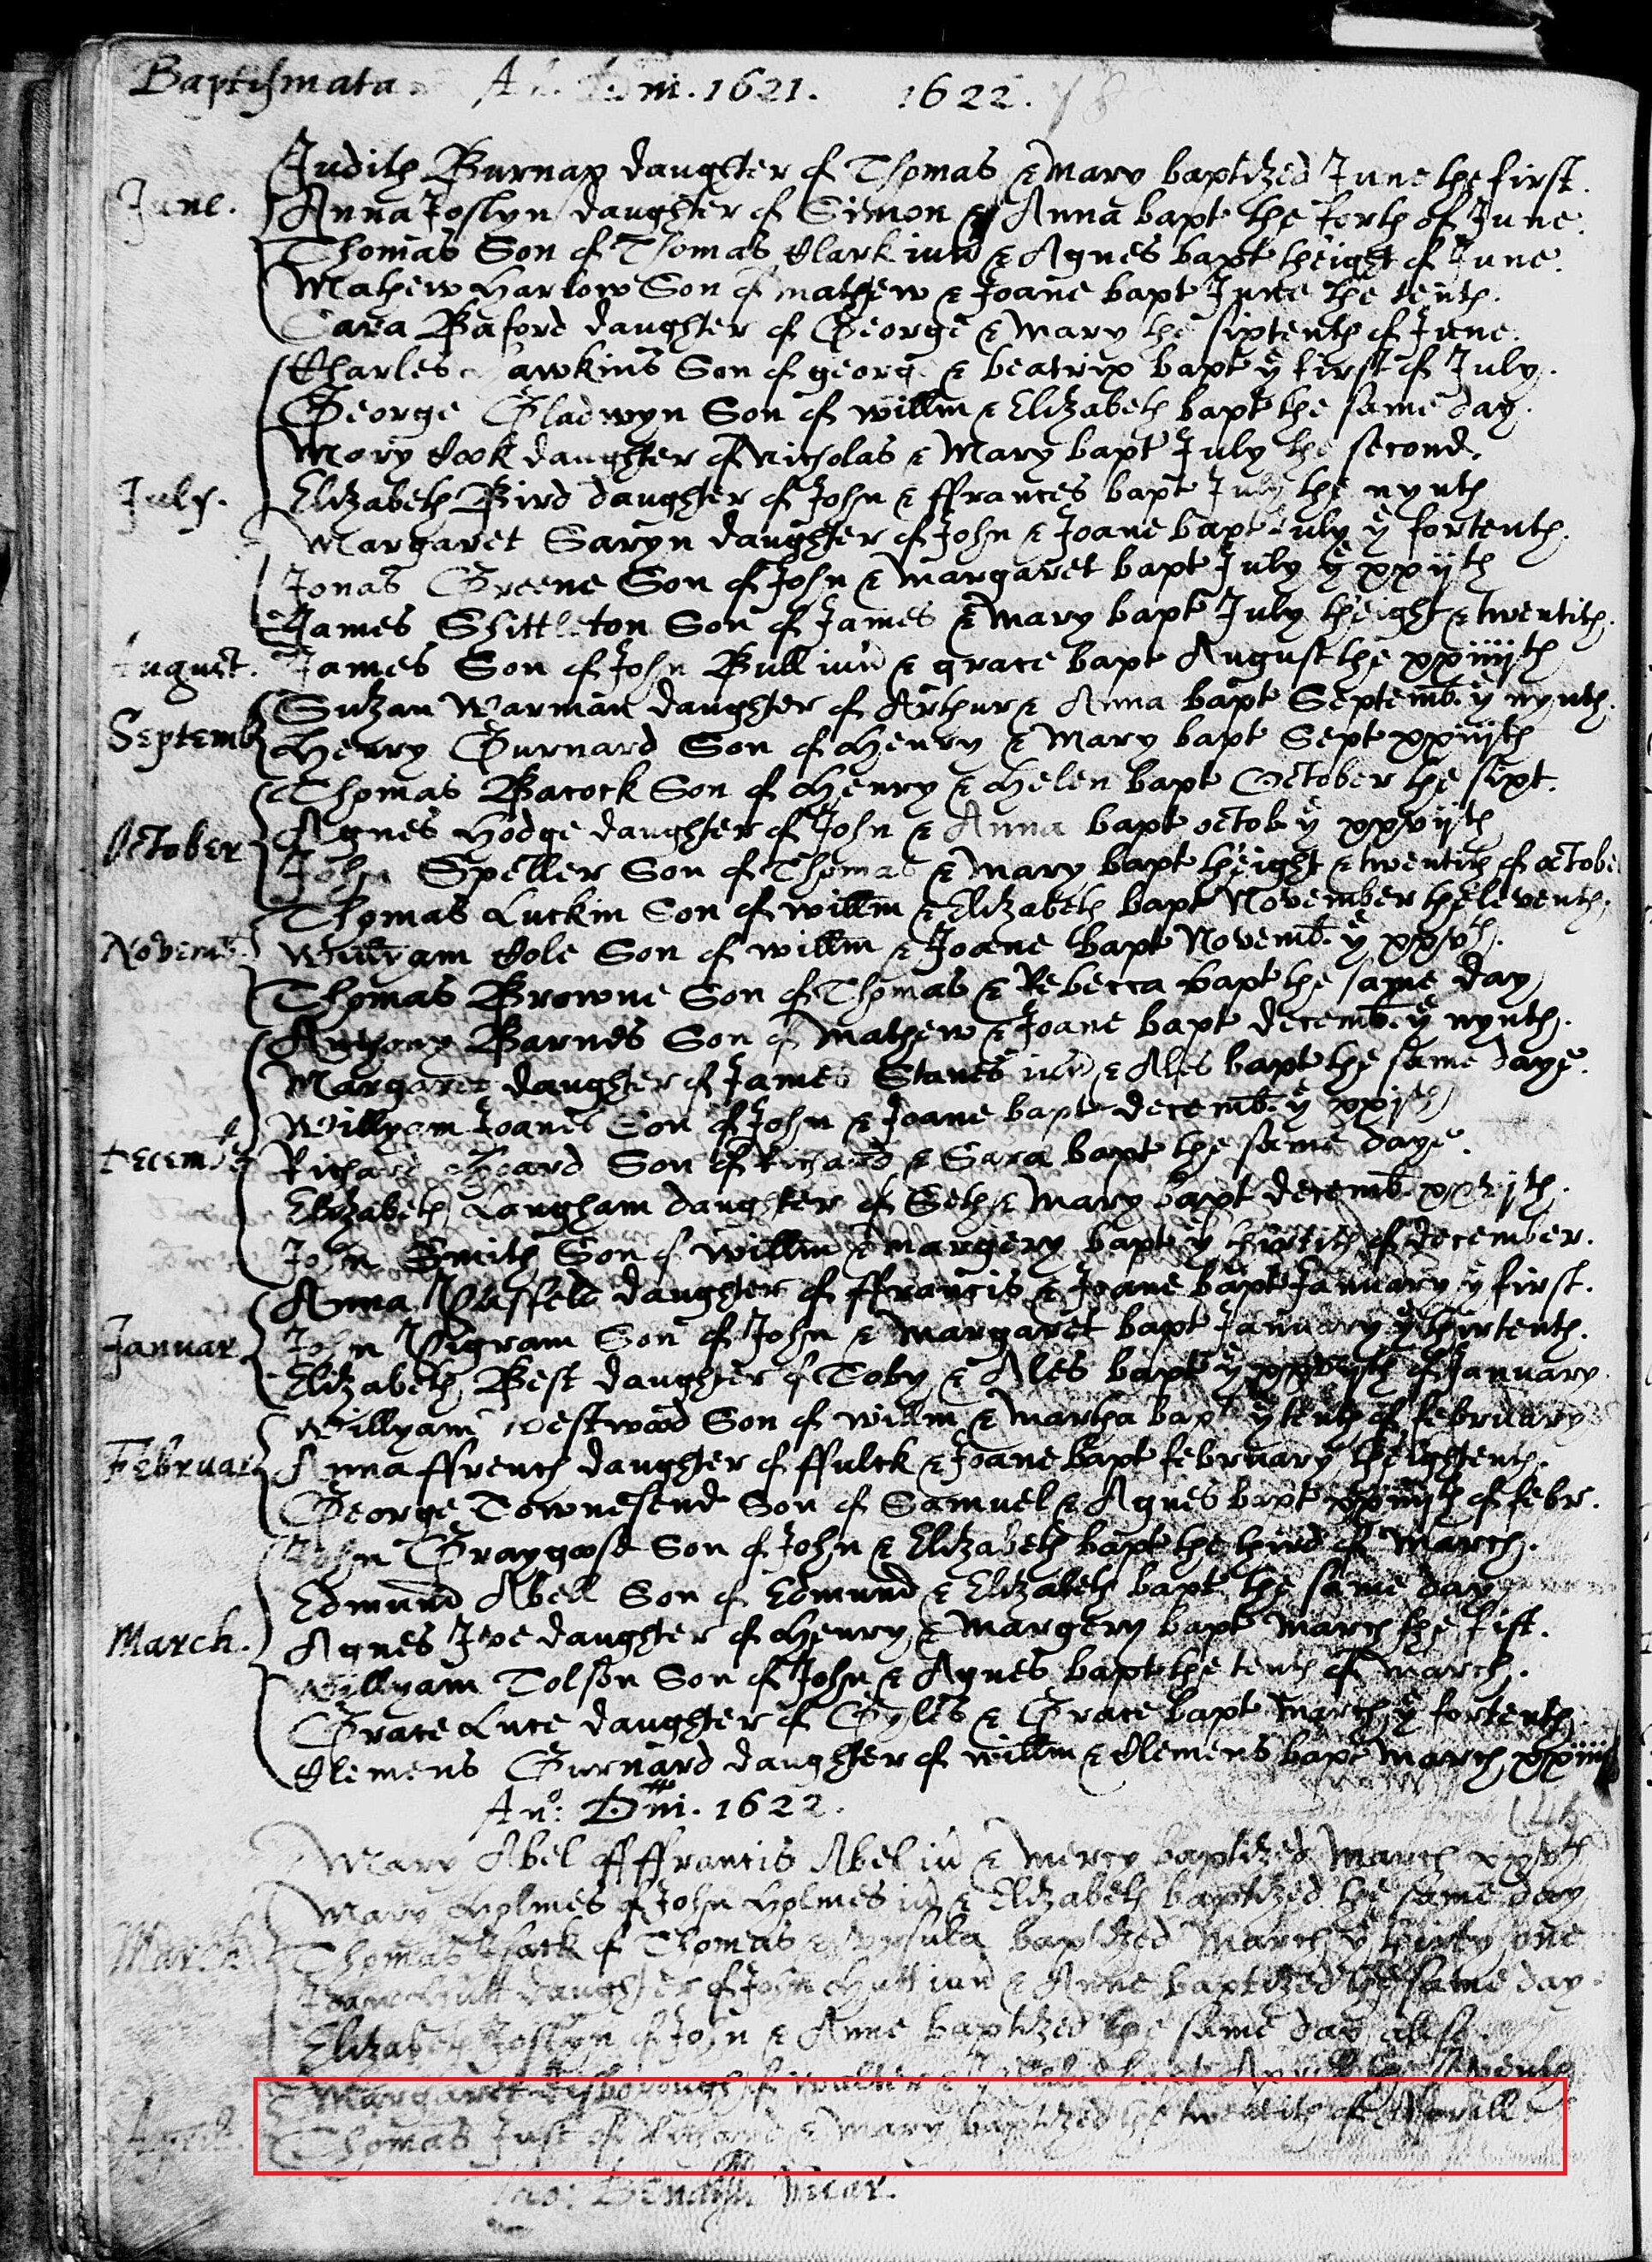 Baptismata Dm. 1621. 1622.
Judith Burnap daughter of Thomas & Mary baptized June the first.
June. Anna Joslyn daughter of Simon & Anna bapt the forth of June.
Thomas Son of Thomas Clark iun & Agnes bapt theight of June.
Mathew Harlow Son of mathew & Joane bapt June the tenth.
Sara Baford daughter of George & Mary the sixtenth of June.
Charles Hawkins Son of georg & beatrix bapt ye first of July.
George Gladwyn Son of willm & Elizabeth bapt the same day.
Mary Cook daughter of Nicholas & Mary bapt July the second.
July. Elizabeth Bird daughter of John & ffrances bapt July the nynth
Margaret Saryn daughter of John & Joane bapt July ye fortenth.
Jonas Greene Son of John & margaret bapt July ye xxijth
James Shittleton Son of James & Mary bapt July theight & twentith.
August. James Son of John Bull iun & grace bapt August the xxiiijth
Suzan Warman daughter of Arthur & Anna bapt Septemb. ye nynth.
Septemb Henry Gurnard Son of Henry & Mary bapt Sept xxiijth
Thomas Bacock Son of Henry & Helen bapt October the sixt.
October Agnes Hodge daughter of John & Anna bapt octob ye xxvijth
John Speller Son of Thomas & Mary bapt theight & twentith of octobe
Thomas Luckin Son of willm & Elizabeth bapt November theleventh.
Novemb. Willyam Cole Son of willm & Joane bapt Novemb. ye xxvth.
Thomas Browne Son of Thomas & Rebecca bapt the same day
Anthony Barnes Son of Mathew & Joane bapt decemb. ye nynth.
Margaret daughter of James Stanes iun & Ales bapt the same daye.
Willyam Joanes Son of John & Joane bapt decemb. ye xxjth
Decemb Richard Son of Richard & Sara bapt the same daye.
Elizabeth Langham daughter of Seth & Mary bapt decemb. xxijth.
John Smith Son of willm & margery bapt ye thirtith of december.
Anna daughter of ffrancis & Joane bapt January ye first.
Januar John Pigram Son of John & margaret bapt January ye thirtenth.
Elizabeth Best daughter of Toby & Ales bapt ye of January
Willyam westwood Son of willm & martha bapt ye tenth of february
Februar Anna ffrench daughter of ffulck & Joane bapt february theightenth.
George Townesend Son of Samuel & Agnes bapt xxiiijth of febr.
John Graygoose Son of John & Elizabeth bapt the third of March.
Edmund Abell Son of Edmund & Elizabeth bapt the same day
March. Agnes Ive daughter of Henry & Margery bapt March the fift.
Willyam Tolson Son of John & Agnes bapt the tenth of march.
Grace Luce daughter of Gyles & Grace bapt March ye fortenth
Clemens Gurnard daughter of willm & Clemens bapt March xxiiij
Ano: Dm. 1622.
Mary Abel of ffrancis Abel iu & Mercy baptized March xxvth
Mary Holmes of John Holmes iu & Elizabeth baptized the same day
March Thomas of Thomas & Ursula baptized March ye thirty one
Joane Hutt daughter of John Hutt iun & Anne baptized the same day.
Elizabeth Joslyn of John & Anne baptized the same day also.
Margaret of walter & bapt Aprill the
Aprill. Thomas Just of Richard & Mary baptized the twentith of Aprill
Vicar.